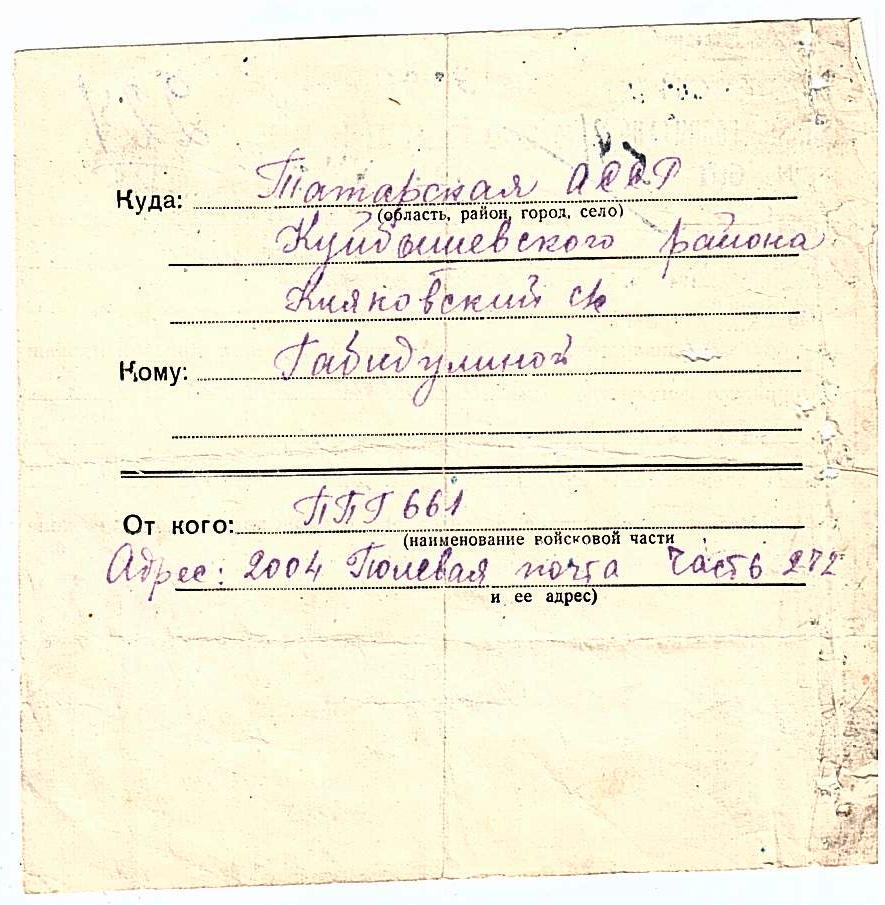 Куда: Татарская АССР
(область, район, город, село)
Куйбышевского района
Княковский с/с
Кому: Габидулиной
От кого: ППГ 661
(наименование войсковой части
Адрес: 2004 Полевая почта Часть 272
и ее адрес)